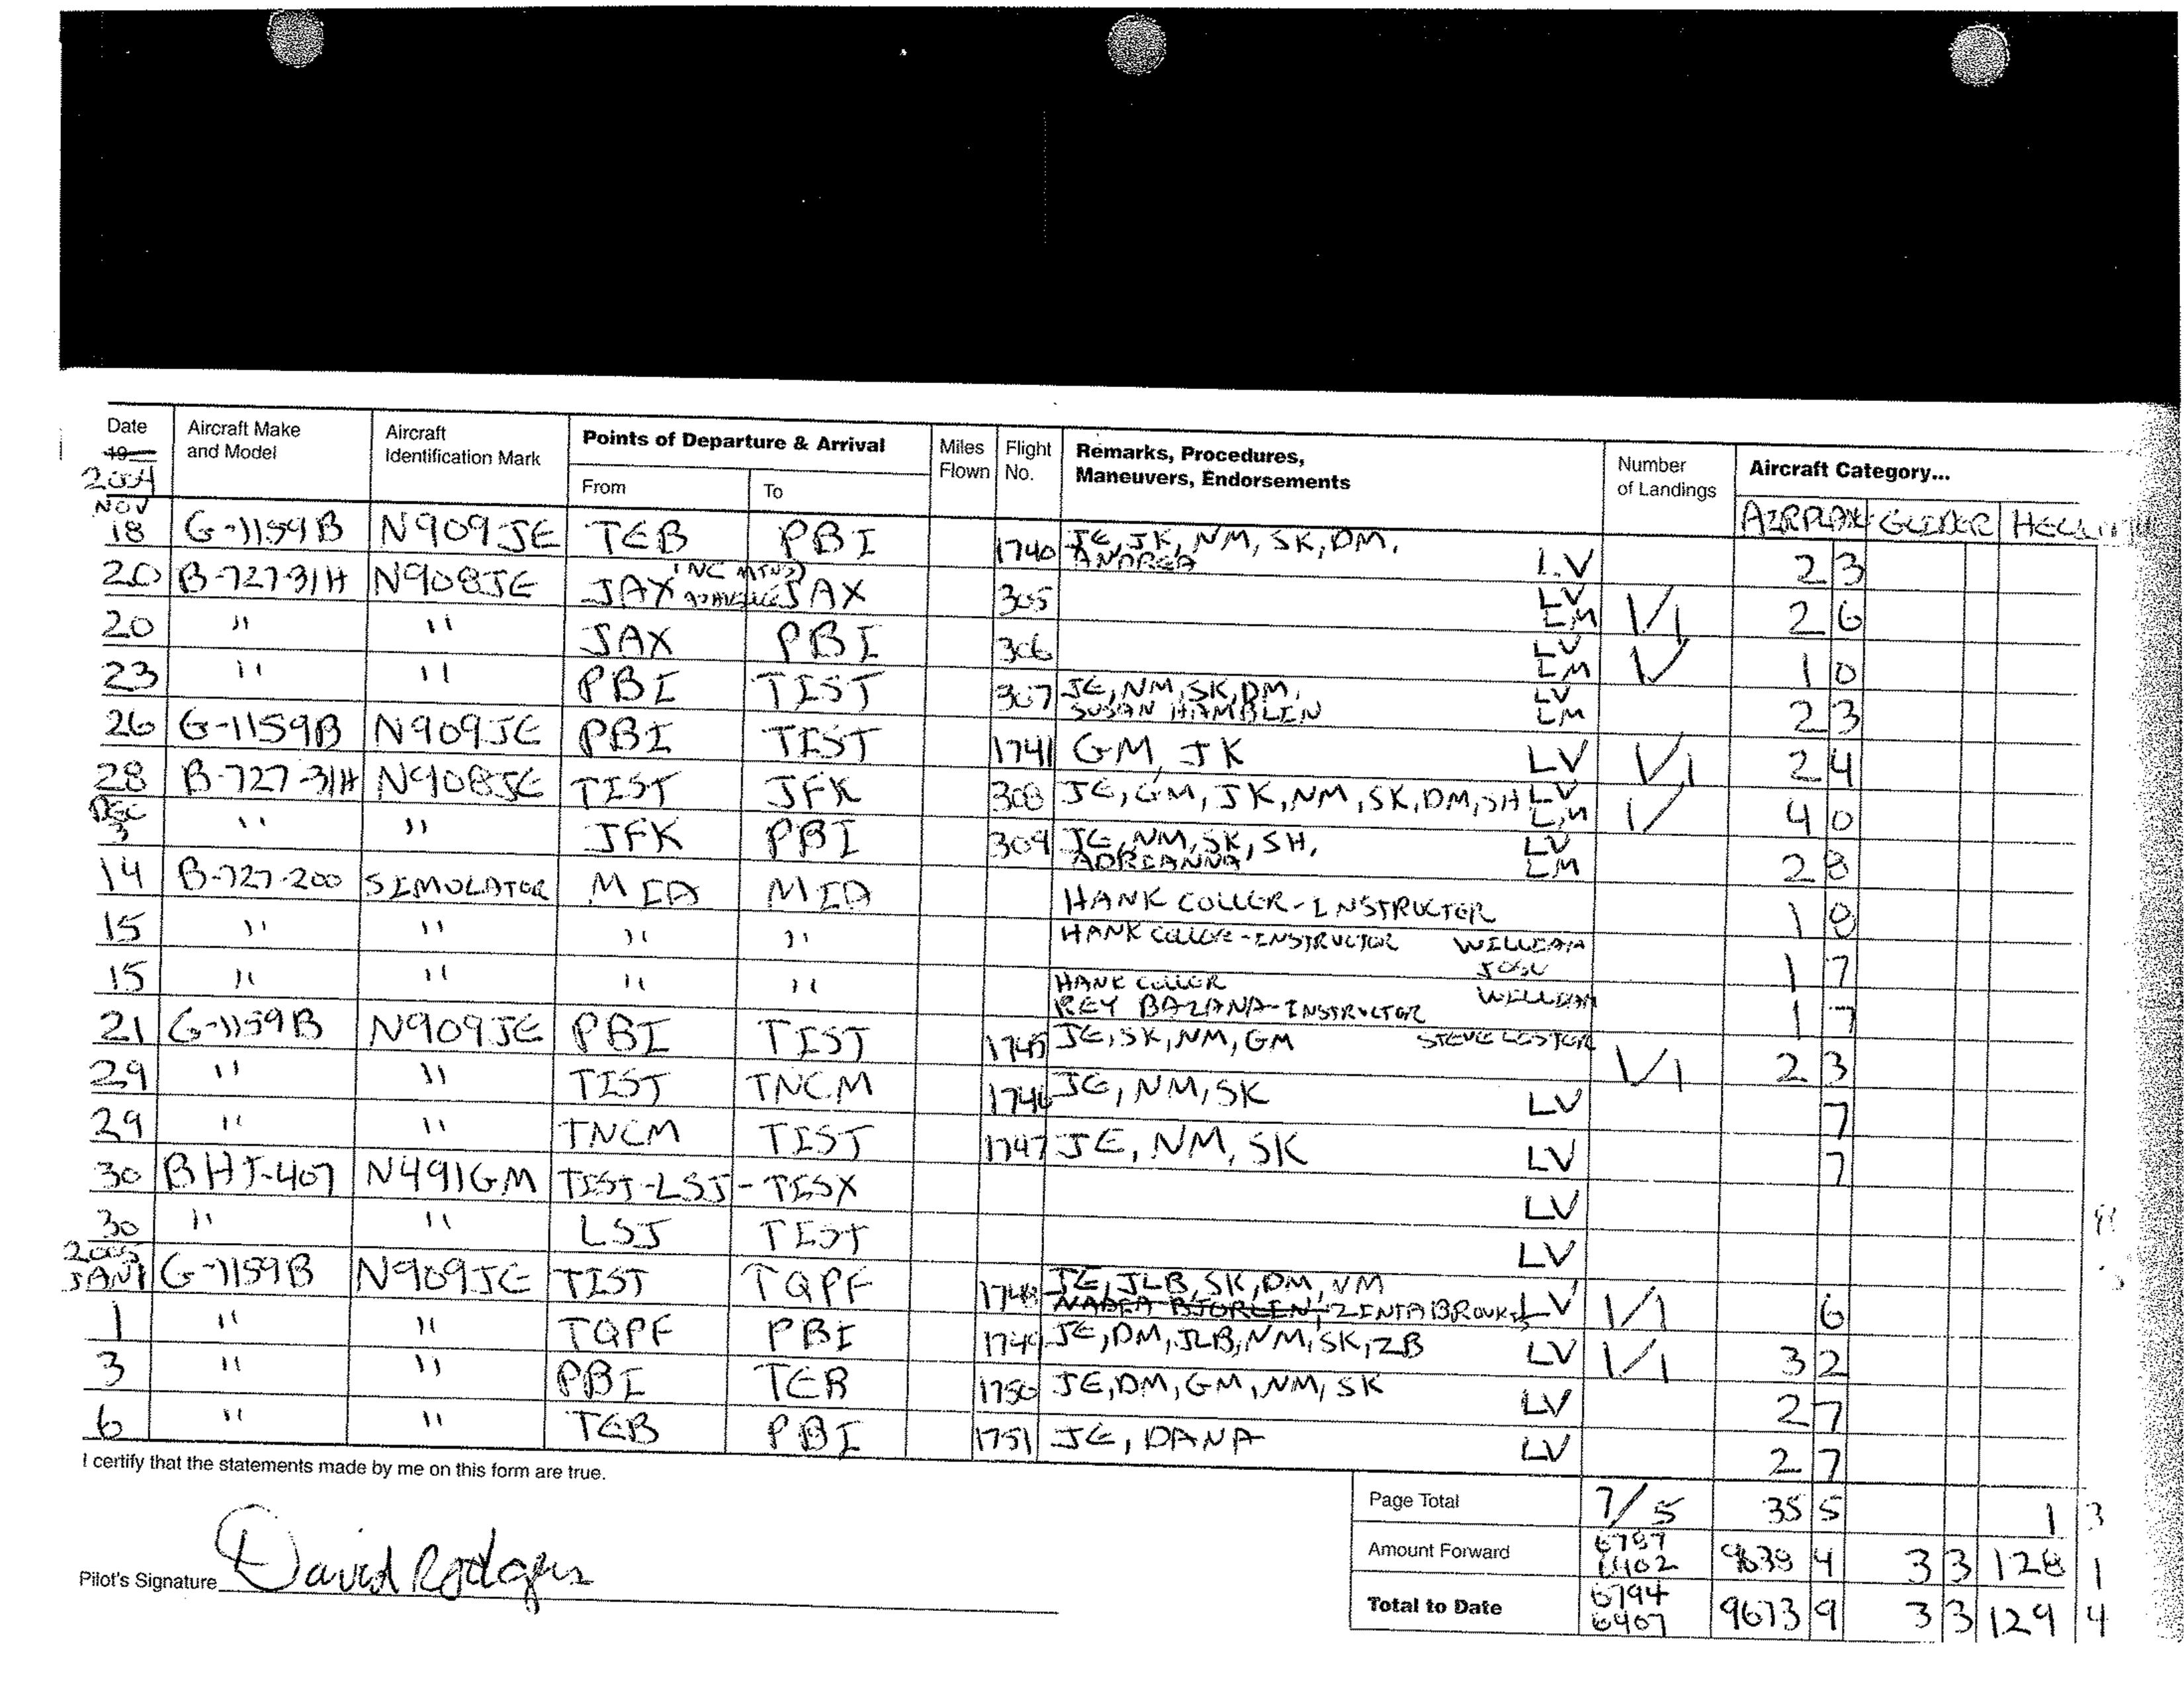 Date Aircraft Make Aircraft Points of Departure & Arrival Miles Flight Remarks, Procedures, Number Aircraft Category...
19 and Model Identification Mark From To Flown No. Maneuvers, Endorsements of Landings
2004 AIRPLANE GLIDER
NOV
18 G-1159B N909JE TEB PBI 1740 JE, JK, NM, SK, DM, LV 2 3
ANDREA
20 B-727-31H N908JE JAX JAX 305 LV LM 1/1 2 6
20 " " JAX PBI 306 LV LM 1/ 1 0
23 " " PBI TIST 307 JE, NM, SK, DM, LV LM 2 3
SUSAN HAMBLIN
26 G-1159B N909JE PBI TIST 1741 GM, JK LV 1/1 2 4
28 B-727-31H N908JE TIST JFK 308 JE, GM, JK, NM, SK, DM, SH LV LM 1/ 4 0
DEC
3 " " JFK PBI 309 JE, NM, SK, SH, LV LM 2 8
ADREANNA
14 B-727-200 SIMULATOR MIA MIA HANK COLLER-INSTRUCTOR 1 0
15 " " " " HANK COLLER-INSTRUCTOR WILLIAM 1 7
15 " " " " HANK COLLER WILLIAM 1 7
REY BAZANA-INSTRUCTOR
21 G-1159B N909JE PBI TIST 1745 JE, SK, NM, GM STEVE LESTER 1/1 2 3
29 " " TIST TNCM 1746 JE, NM, SK LV 7
29 " " TNCM TIST 1747 JE, NM, SK LV 7
30 BHT-407 N491GM TIST-LSJ-TISX LV
30 " " LSJ TIST LV
2005
JAN 1 G-1159B N909JE TIST TQPF 1748 JE, JLB, SK, DM, NM LV 1/1 6
NADEA BJORLEN, ZINTA BROUKIS
1 " " TQPF PBI 1749 JE, DM, JLB, NM, SK, ZB LV 1/1 3 2
3 " " PBI TEB 1750 JE, DM, GM, NM, SK LV 2 7
6 " " TEB PBI 1751 JE, DANA LV 2 7
I certify that the statements made by me on this form are true.
Page Total 7/5 35 5 1 3
Amount Forward 6787 6402 9638 4 3 3 128 1
Pilot's Signature David Rodgers
Total to Date 6794 6407 9673 9 3 3 129 4